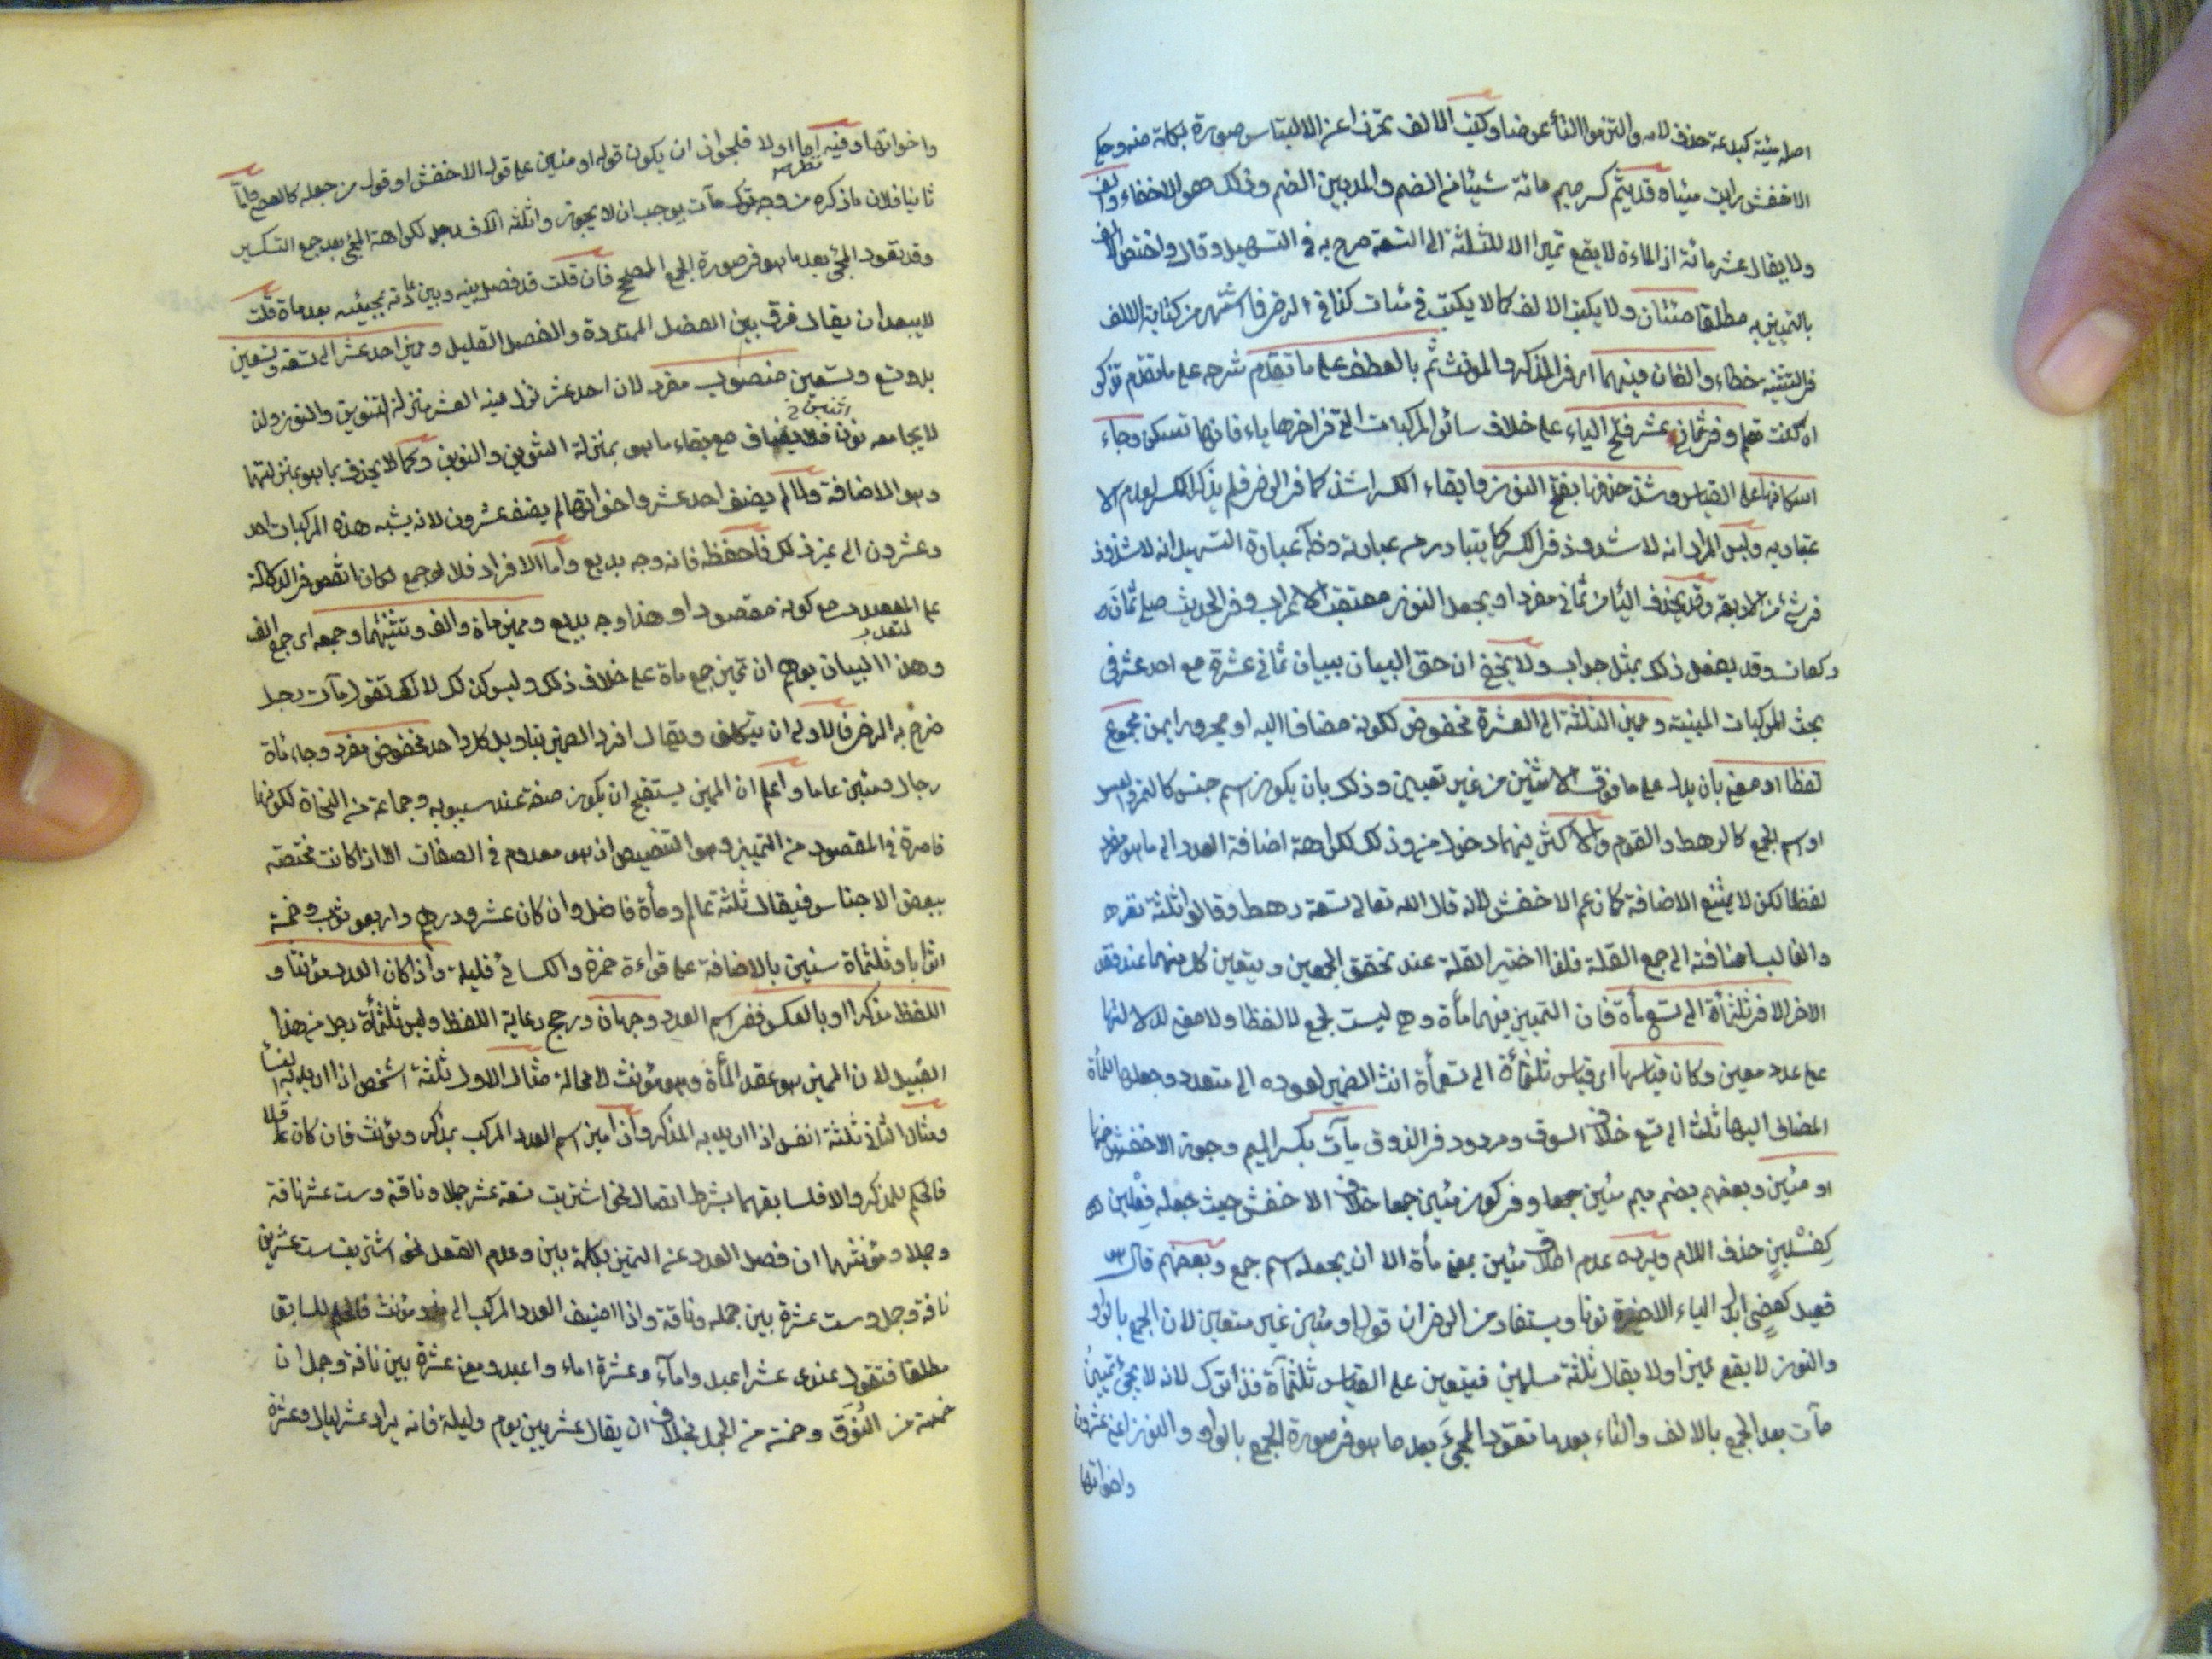 اصله مئية كبدعة حذف لامه والتزموا التأ عوضا وكتب الالف تحرزا عن الالتباس صورة بكلمة منه وحكى
الاخفش رايت مئيا وقد يشم كسر ميم مائة شيئا من الضم والمد بين الضم وذلك هو الاخفاء والف
ولا يقال عشر مائة اذ الماءة لا يقع تميزا الا للثلثة الى التسعة صرح به فى التسهيل وقال واختص الالف
بالتمييز به مطلقا مئتان ولا يكتب الالف كما لا يكتب فى مئات كذا فى الرضى فاشتهر من كتابة الالف
فى التثنية خطاء والفان فيهما اى فى المذكر والمونث ثم بالعطف على ما تقدم شرحه على ما تقدم تذكر
ان كنت تعلم وفى ثمانى عشر فتح الياء على خلاف سائر المركبات التى فى اخرها ياء فانها تسكن وجاء
اسكانها على القياس وشذ حذفها بفتح النون وابقاء الكسر اشذ كما فى الرضى فلم يذكر الكسر لعدم الا
عتداد به وليس المراد انه لا شذوذ فى الكسر كما يتبادر من عبارته وظ عبارة التسهيل انه لا شذوذ
فى شئ من الاربعة وقد يحذف الياء من ثمانى مفردا ويجعل النون معتقب الاعراب وفى الحديث صلى ثمان
ركعات وقد يفعل ذلك بمثل جوار ولا يخفى ان حق البيان ببيان ثمانى عشرة مع احد عشر فى
بحث المركبات المبنية ومميز الثلثة الى العشرة مخفوض لكونه مضافا اليه او مجرورا بمن مجموع
لفظا او معنى بان يدل على ما فوق الاثنين من غير تعيين وذلك بان يكون اسم جنس كالتمر والعسل
او اسم الجمع كالرهط والقوم والاكثر فيهما دخول من وذلك لكراهة اضافة العدد الى ما هو مفرد
لفظا لكن لا يمتنع الاضافة كما زعم الاخفش لانه قال الله تعالى تسعة رهط وقالوا ثلثة نفر
والغالب اضافته الى جمع القلة فلذا اختير القلة عند تحقق الجمعين ويتعين كل منهما عند فقد
الاخر الا فى ثلثمأة الى تسعمأة فان التمييز فيهما مأة وهى ليست بجمع لا لفظا ولا معنى لدلالتها
على عدد معين وكان قياسها اى قياس ثلثمأة الى تسعمأة انث الضمير لعوده الى متعدد وجعلها المأة
المضاف اليها ثلث الى تسع خلاف السوق ومردود فى الذوق مآت بكسر الميم وجوز الاخفش ضمها
او مئين وبعضهم بضم ميم مئين جمعا وفى كون مئين جمعا خلاف الاخفش حيث جعله فعلين
كغسلين حذف اللام ويرده عدم اطلاق مئين بمعنى مأة الا ان يجعله اسم جمع وبعضهم قال
فعيل كعصى ابدل الياء الاخيرة نونا ويستفاد من الرضى ان قوله او مئين غير متعين لان الجمع بالواو
والنون لا يقع مميزا ولا يقال ثلثة مسلمين فيتعين على القياس ثلثمآة فذا ترك لانه لا يجئ تمييز
مآت بعد الجمع بالالف والتاء بعد ما تعود المجئ بعد ما هو فى صورة الجمع بالواو والنون اعنى عشرون
واخواتها
واخواتها وفيه نظر اما اولا فلجواز ان يكون قوله او مئين على قول الاخفش او قول من جعله كالعصى واما
ثانيا فلان ما ذكره من وجه ترك مآت يوجب ان لا يجوز وثلثة آلاف رجل لكراهة المجئ بعد جمع التكسير
وقد تعود المجئ بعد ما هو فى صورة الجمع المصحح فان قلت قد فصل بينه وبين عادته بمجيئه بعد ماة قلت
لا يبعد ان يقال فرق بين الفصل الممتد والفصل القليل ومميز احد عشر الى تسعة وتسعين
بل وتسع وتسعين منصوب مفرد لان احد عشر نزل فيه العشر منزلة التنوين والنون ولن
لا يجامعه نون اثنين فلا يضاف مع بقاء ما هو بمنزلة التنوين والنون وكما لا يحذف بما هو بمنزلتهما
وهو الاضافة ولما لم يضف احد عشر واخواتها لم يضف عشرون لانه يشبه هذه المركبات احد
وعشرون الى غير ذلك فاحفظه فانه وجه بديع واما الافراد فلانه لو جمع لكان انقص فى الدلالة
على المعدود لتعدده مع كونه مقصودا وهذا وجه بديع ومميز ماة والف وتثنيتهما وجمعه اى جمع الف
وهذا البيان يوهم ان تميز جمع ماة على خلاف ذلك وليس كذلك لانك تقول مآت رجل
صرح به الرضى فالاولى ان يتكلف ويقال افرد الضمير بتاويل كل واحد مخفوض مفرد وجاء ماة
رجال ومئين عاما واعلم ان المميز يستقبح ان يكون صفة عند سيبويه وجماعة من النحاة لكونها
قاصرة فى المقصود من التمييز وهو التنصيص اذ هو معدوم فى الصفات الا اذا كانت مختصة
ببعض الاجناس فيقال ثلثة عالم ومأة فاضل وان كان عشرو درهم واربعو ثوب وخمسة
اثوابا وثلثماة سنين بالاضافة على قراءة حمزة والكسائى قليلة واذا كان المعدود مونثا و
اللفظ مذكرا او بالعكس ففى اسم العدد وجهان ورجح رعاية اللفظ وليس ثلثمأة رجل من هذا
القبيل لان المميز هو عقد المأة وهو مؤنث لا محالة مثال الاول ثلثة اشخص اذا اريد به نساء
ومثال الثانى ثلثة انفس اذا اريد به المذكر واذا ميز اسم العدد المركب بمذكر ومؤنث فان كان عاقلا
فالحكم للمذكر والا فلسابقهما بشرط اتصال نحو اشتريت تسعة عشر جملا وناقة وست عشر ناقة
وجملا ومؤنثهما ان فصل العدد عن التميز بكلمة بين وعدم العقل نحو اشتريت ست عشر بين
ناقة وجمل وست عشرة بين جمله وناقة واذا اضيف العدد المركب الى مؤنث فالحكم للسابق
مطلقا فتقول عندى عشر اعبد وامآء وعشرة اماء واعبد ومعى عشرة بين ناقة وجمل ان
خمسة من النوق وخمسة من الجمل بخلاف ان يقال عشر بين يوم وليلة فانه يراد عشر ليال وعشرة